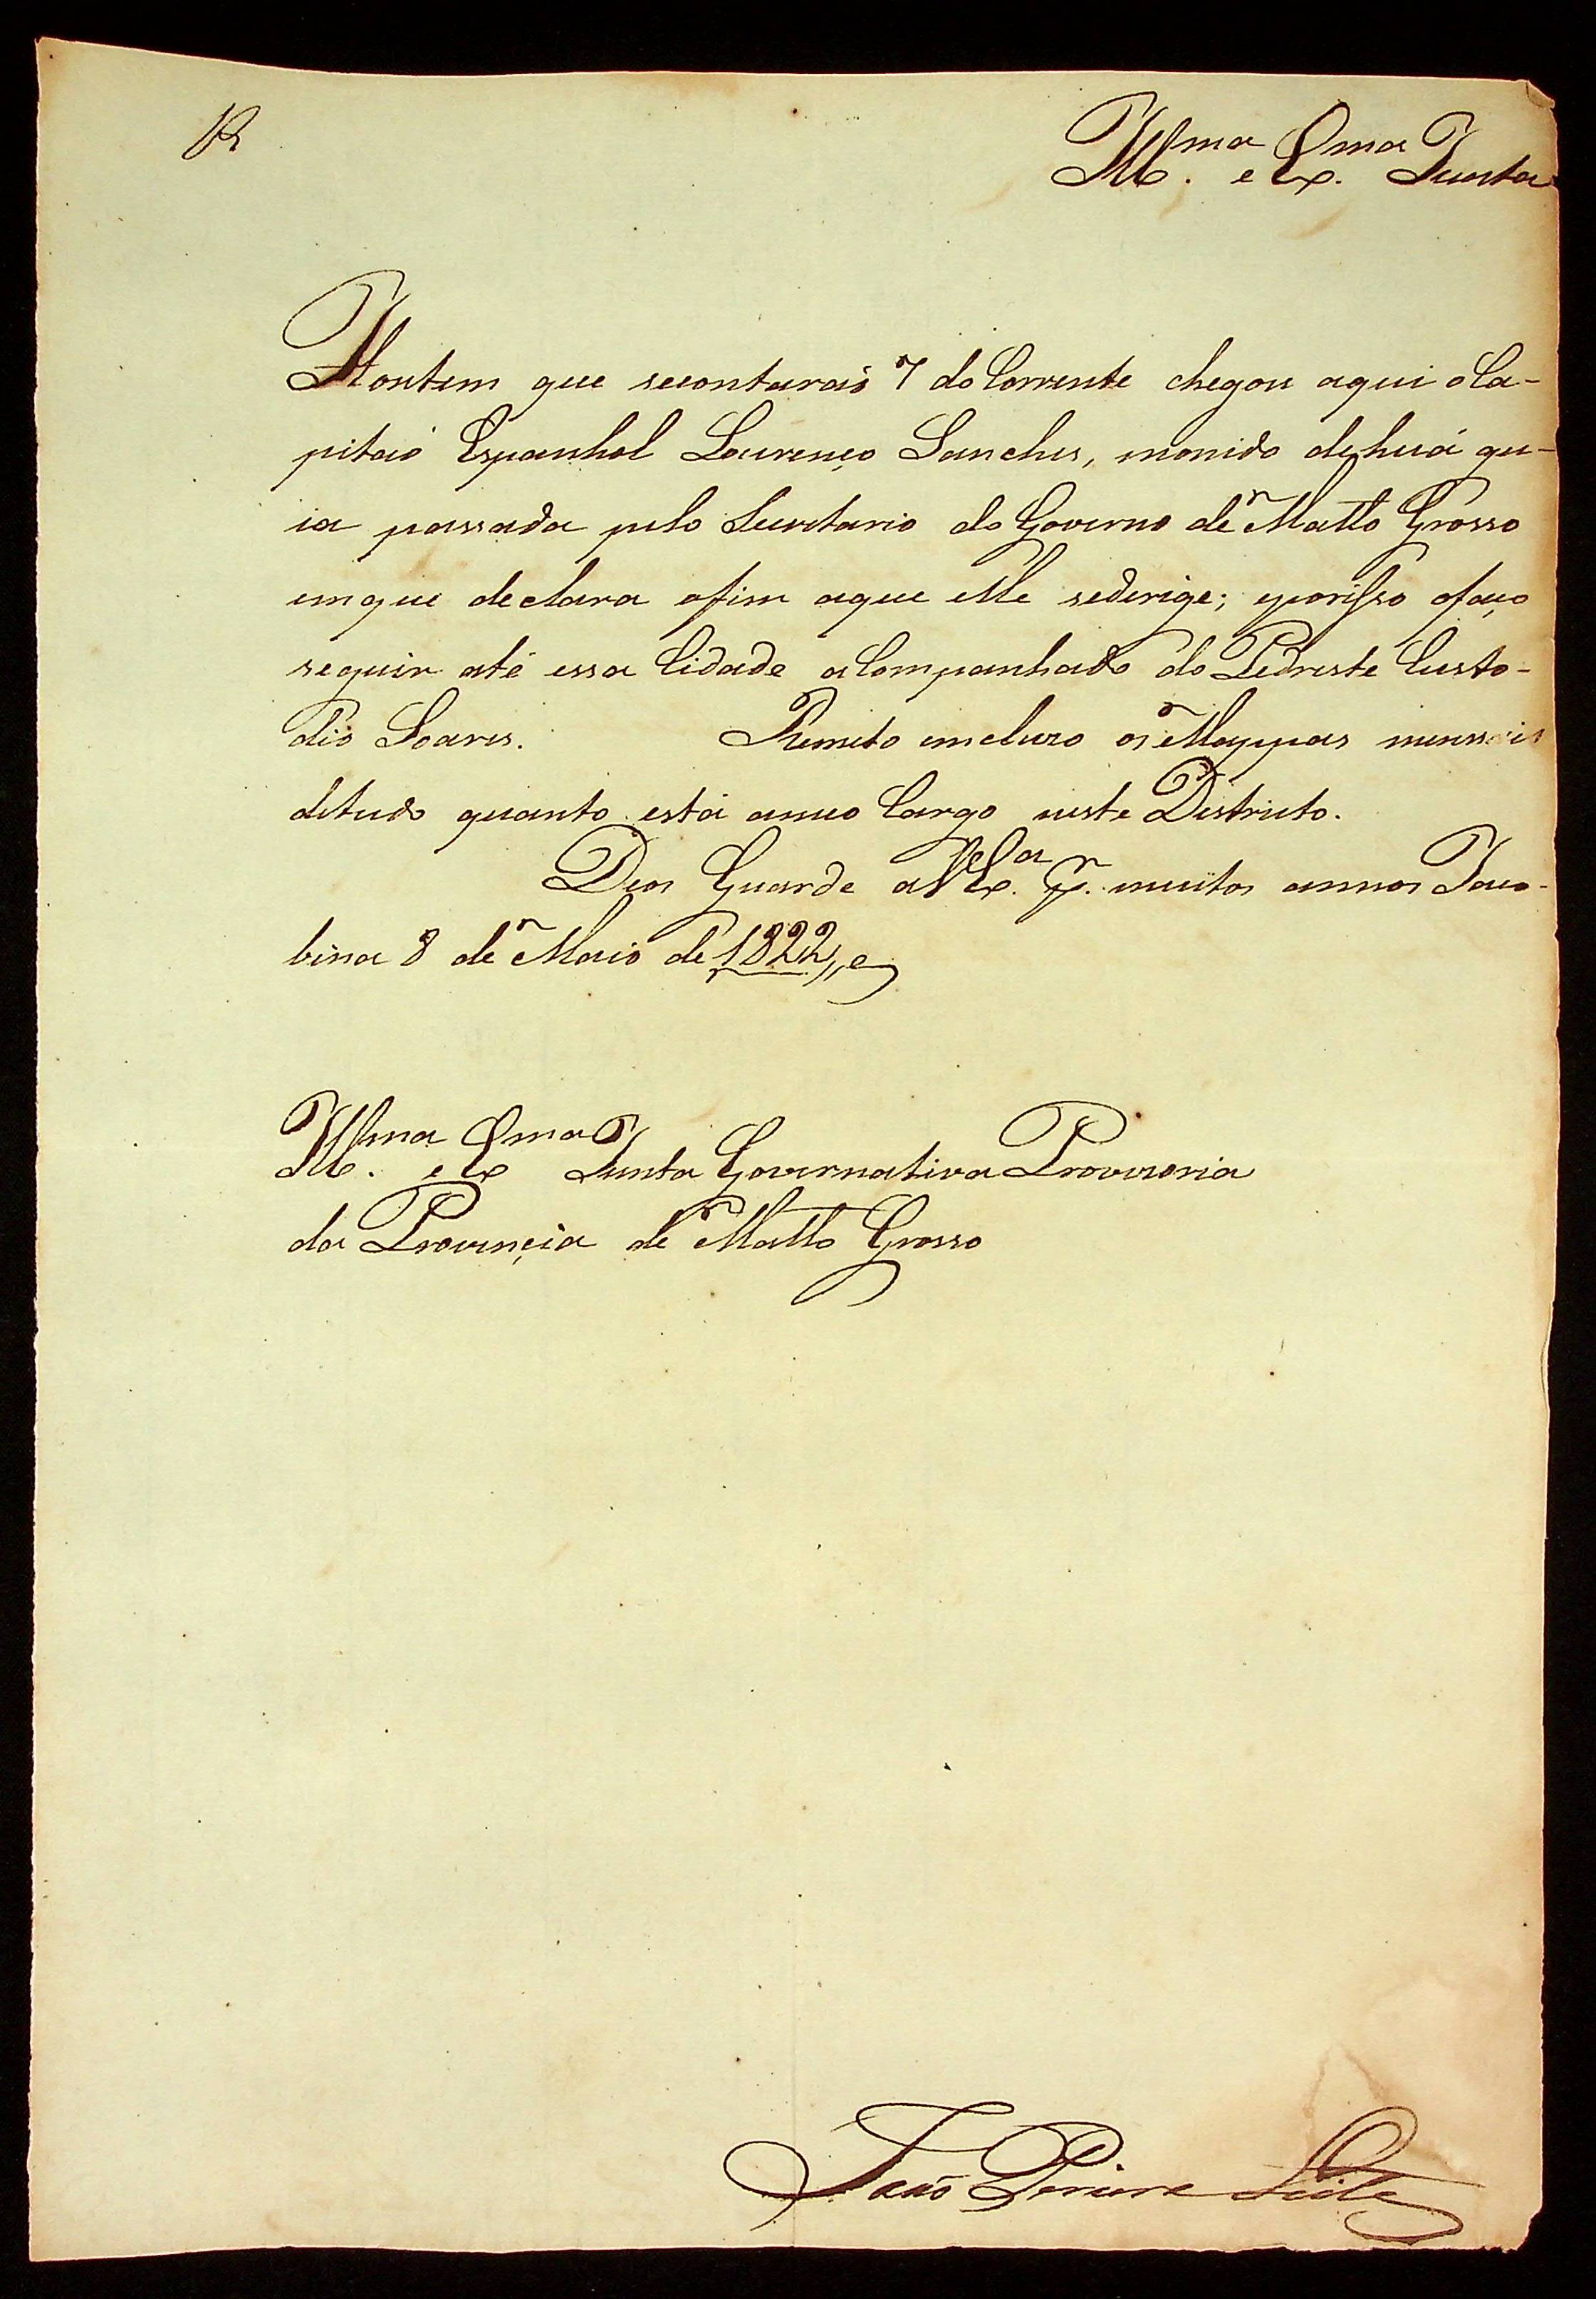 R
Ill.ma e Ex.ma Junta
Hontem que secontaraõ 7 do Corrente chegou aqui o Ca-
pitaõ Espanhol Lourenço Sanches, monido dehuá gu-
ia passada pelo Secretario do Governo de Matto Grosso
emque declara ofim aque elle sederige; eporisso ofaço
seguir até essa Cidade aCompanhado do Pedreste Custo-
dio Soares. Remeto emcluzo os Mappas mensais
detudo quanto está ameo Cargo neste Destricto.
Deos Guarde a V Ex.ca p.r muitos annos Jaco-
bina 8 de Maio de 1822,,
Ill.ma e Ex.ma Junta Governativa Provizoria
da Provinçia de Matto Grosso
Joaõ Pereira Leite